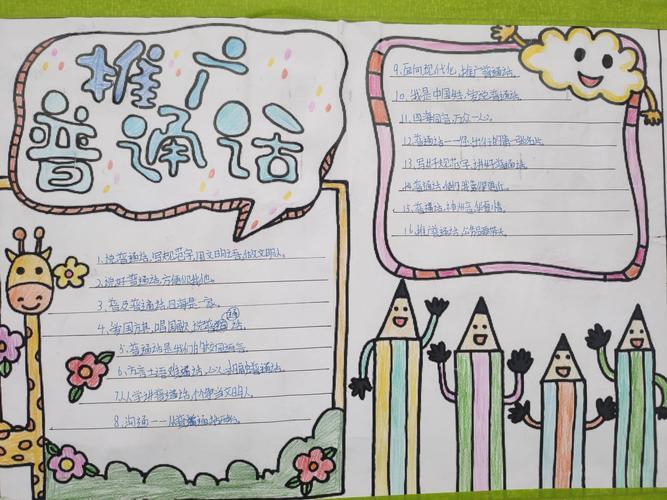 推广
普通话
1.说普通话,写规范字,用文明语,做文明人。
2.说好普通话,方便你我他。
3.普及普通话,四海是一家。
4.爱国旗,唱国歌,说普通话。
5.普通话是我们的校园语言。
6.方言土语难普通话,心心相印普通话。
7.人人学讲普通话,个个争当文明人。
8.沟通——从普通话开始。
9.面向现代化,推广普通话。
10.我是中国娃,爱说普通话。
11.四海同音,万众一心。
12.普通话——你我的第一张名片。
13.写好规范字,讲好普通话。
14.普通话,使你我靠得更近。
15.普通话,神州音,华夏情。
16.推广普通话,公务员要带头。